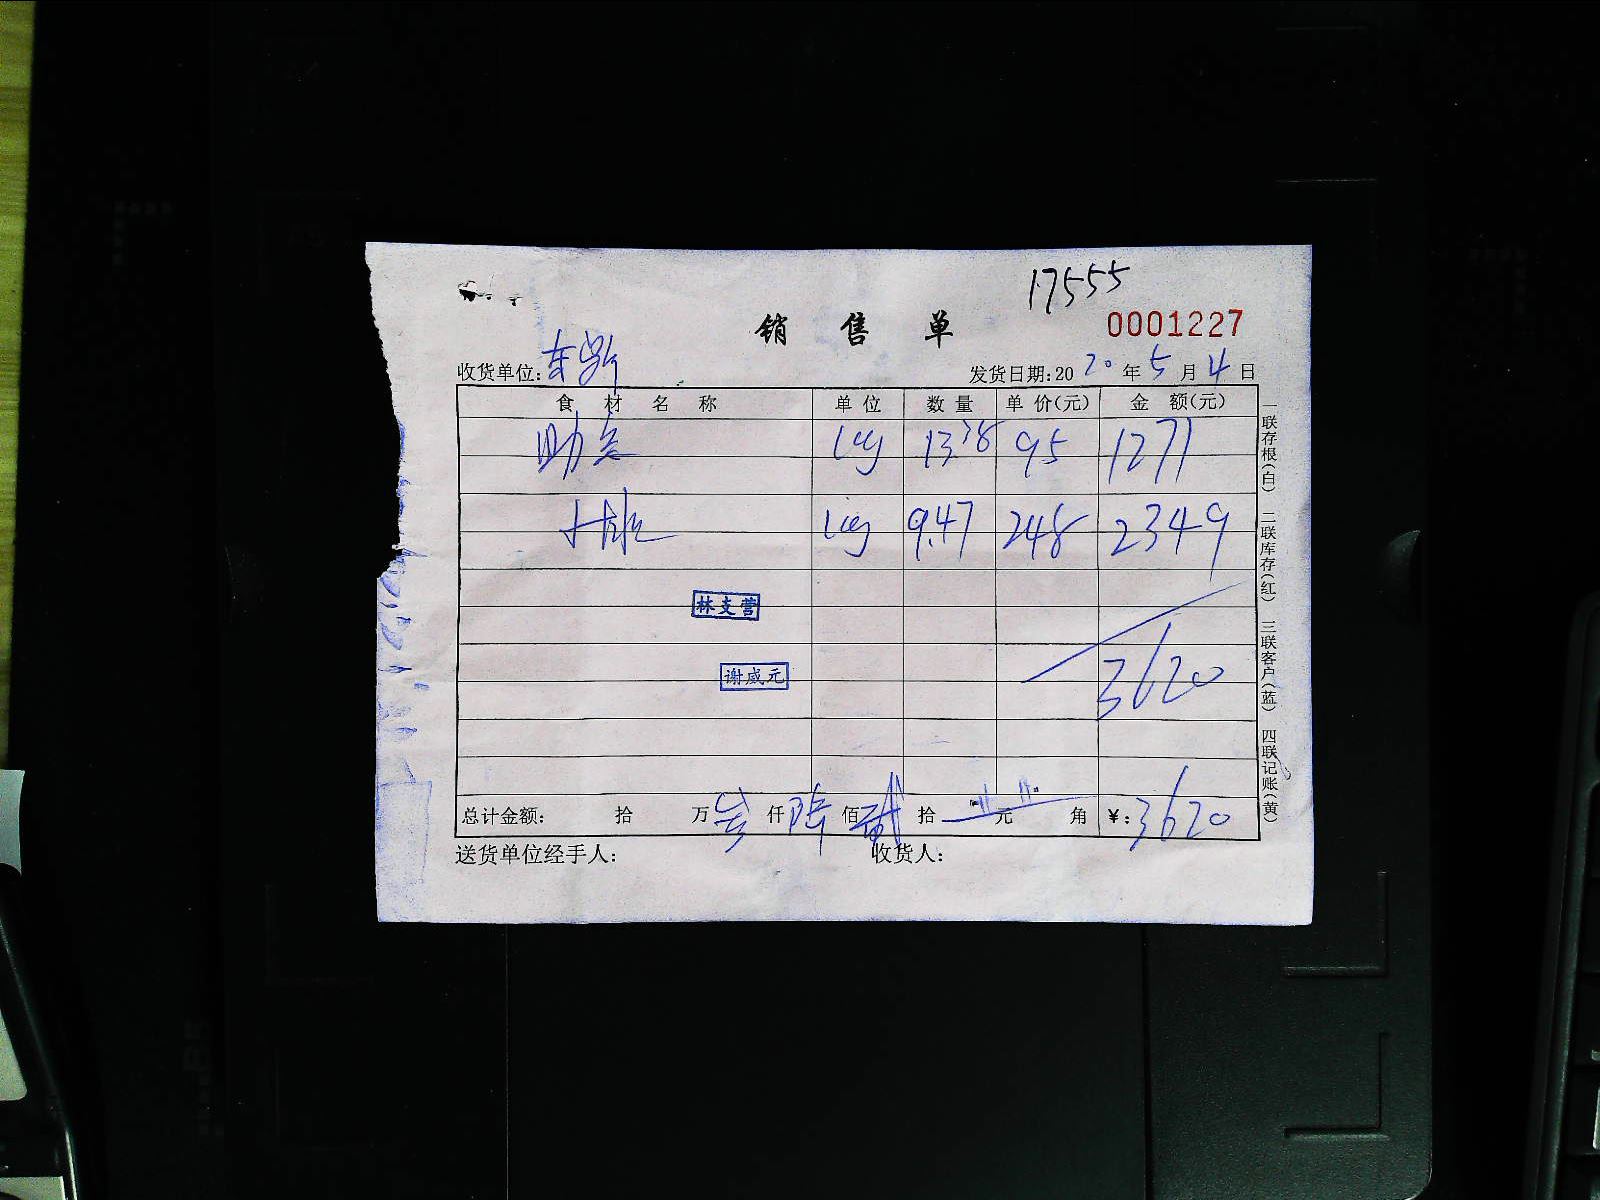 17555
销售单 0001227
收货单位: 发货日期:2020年5月4日
食材名称 单位 数量 单价(元) 金额(元)
kg 13.38 95 1271
kg 9.47 248 2349
林支营
谢咸元
3620
总计金额: 拾 万叁仟陆佰贰拾 元 角 ¥:3620
送货单位经手人: 收货人:
一联存根(白) 二联库存(红) 三联客户(蓝) 四联记账(黄)